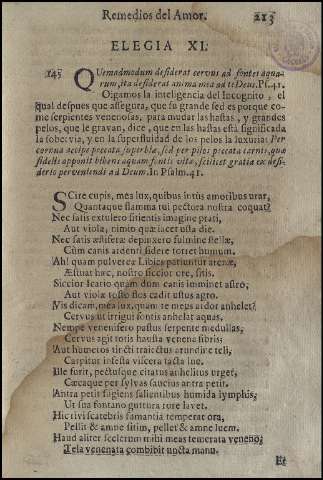 Remedios del Amor. 213
ELEGIA XI.
145 QUemadmodum desiderat cervus ad fontes aqua-
rum, ita desiderat anima mea ad te Deus. Ps. 41.
Oigamos la inteligencia del Incognito, el
qual despues que assegura, que su grande sed es porque co-
me serpientes venenosas, para mudar las hastas, y grandes
pelos, que le gravan, dice, que en las hastas està significada
la sobervia, y en la superfluidad de los pelos la luxuria: Per
cornua accipe peccata superbiæ, sed per pilos peccata carnis, quæ
fidelis apponit bibens aquam fontis vitæ, scilicet gratia ex desi-
derio perveniendi ad Deum. In Psalm. 41.
SCire cupis, mea lux, quibus intùs amoribus urar,
Quantaque flamma tui pectora nostra coquat?
Nec satis extulero sitientis imagine prati,
Aut viola, nimio quæ iacet usta die.
Nec satis æstiferæ depinxero fulmine stellæ,
Cùm canis ardenti sidere torret humum.
Ah! quam pulvereæ Libies patiuntur arenæ,
Æstuat hæc, nostro siccior ore, sitis.
Siccior Icario quam dum canis imminet astro,
Aut viola tosto flos cadit ustus agro.
Vis dicam, mea lux, quam te meus ardor anhelet?
Cervus ut irrigui fontis anhelat aquas,
Nempe venenifero pastus serpente medullas,
Cervus agit totis hausta venena fibris;
Aut humeros tincti traiectus arundine teli,
Carpitur infesta viscera tacta lue.
Ille furit, pectusque citatus anhelitus urget,
Cæcaque per sylvas saucius antra petit.
Antra petit fugiens salientibus humida lymphis,
Ut sua fontano guttura rore lavet.
Hic tivi scatebris flamantia temperat ora,
Pellit & amne sitim, pellet & amne luem.
Haud aliter scelerum mihi mens temerata veneno;
Tela venenata combibit uncta manu.
Et